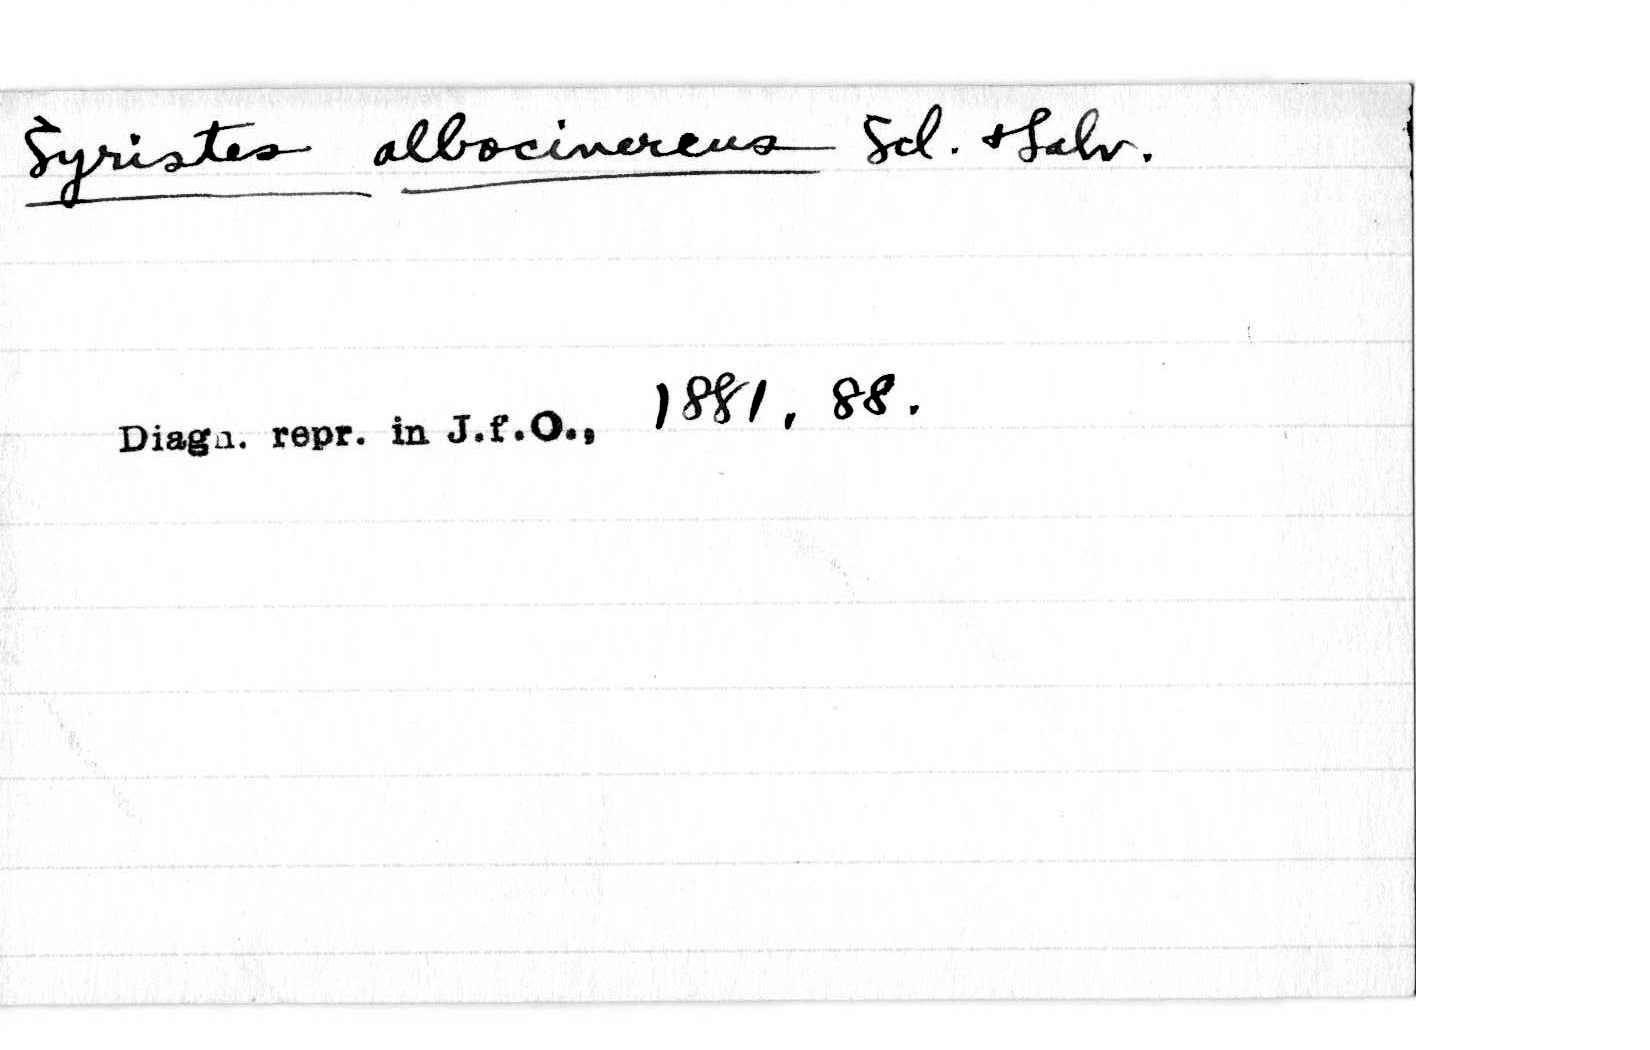 Syristes albocinereus Scl. + Salv.
Diagn. repr. in J.f.O., 1881, 88.